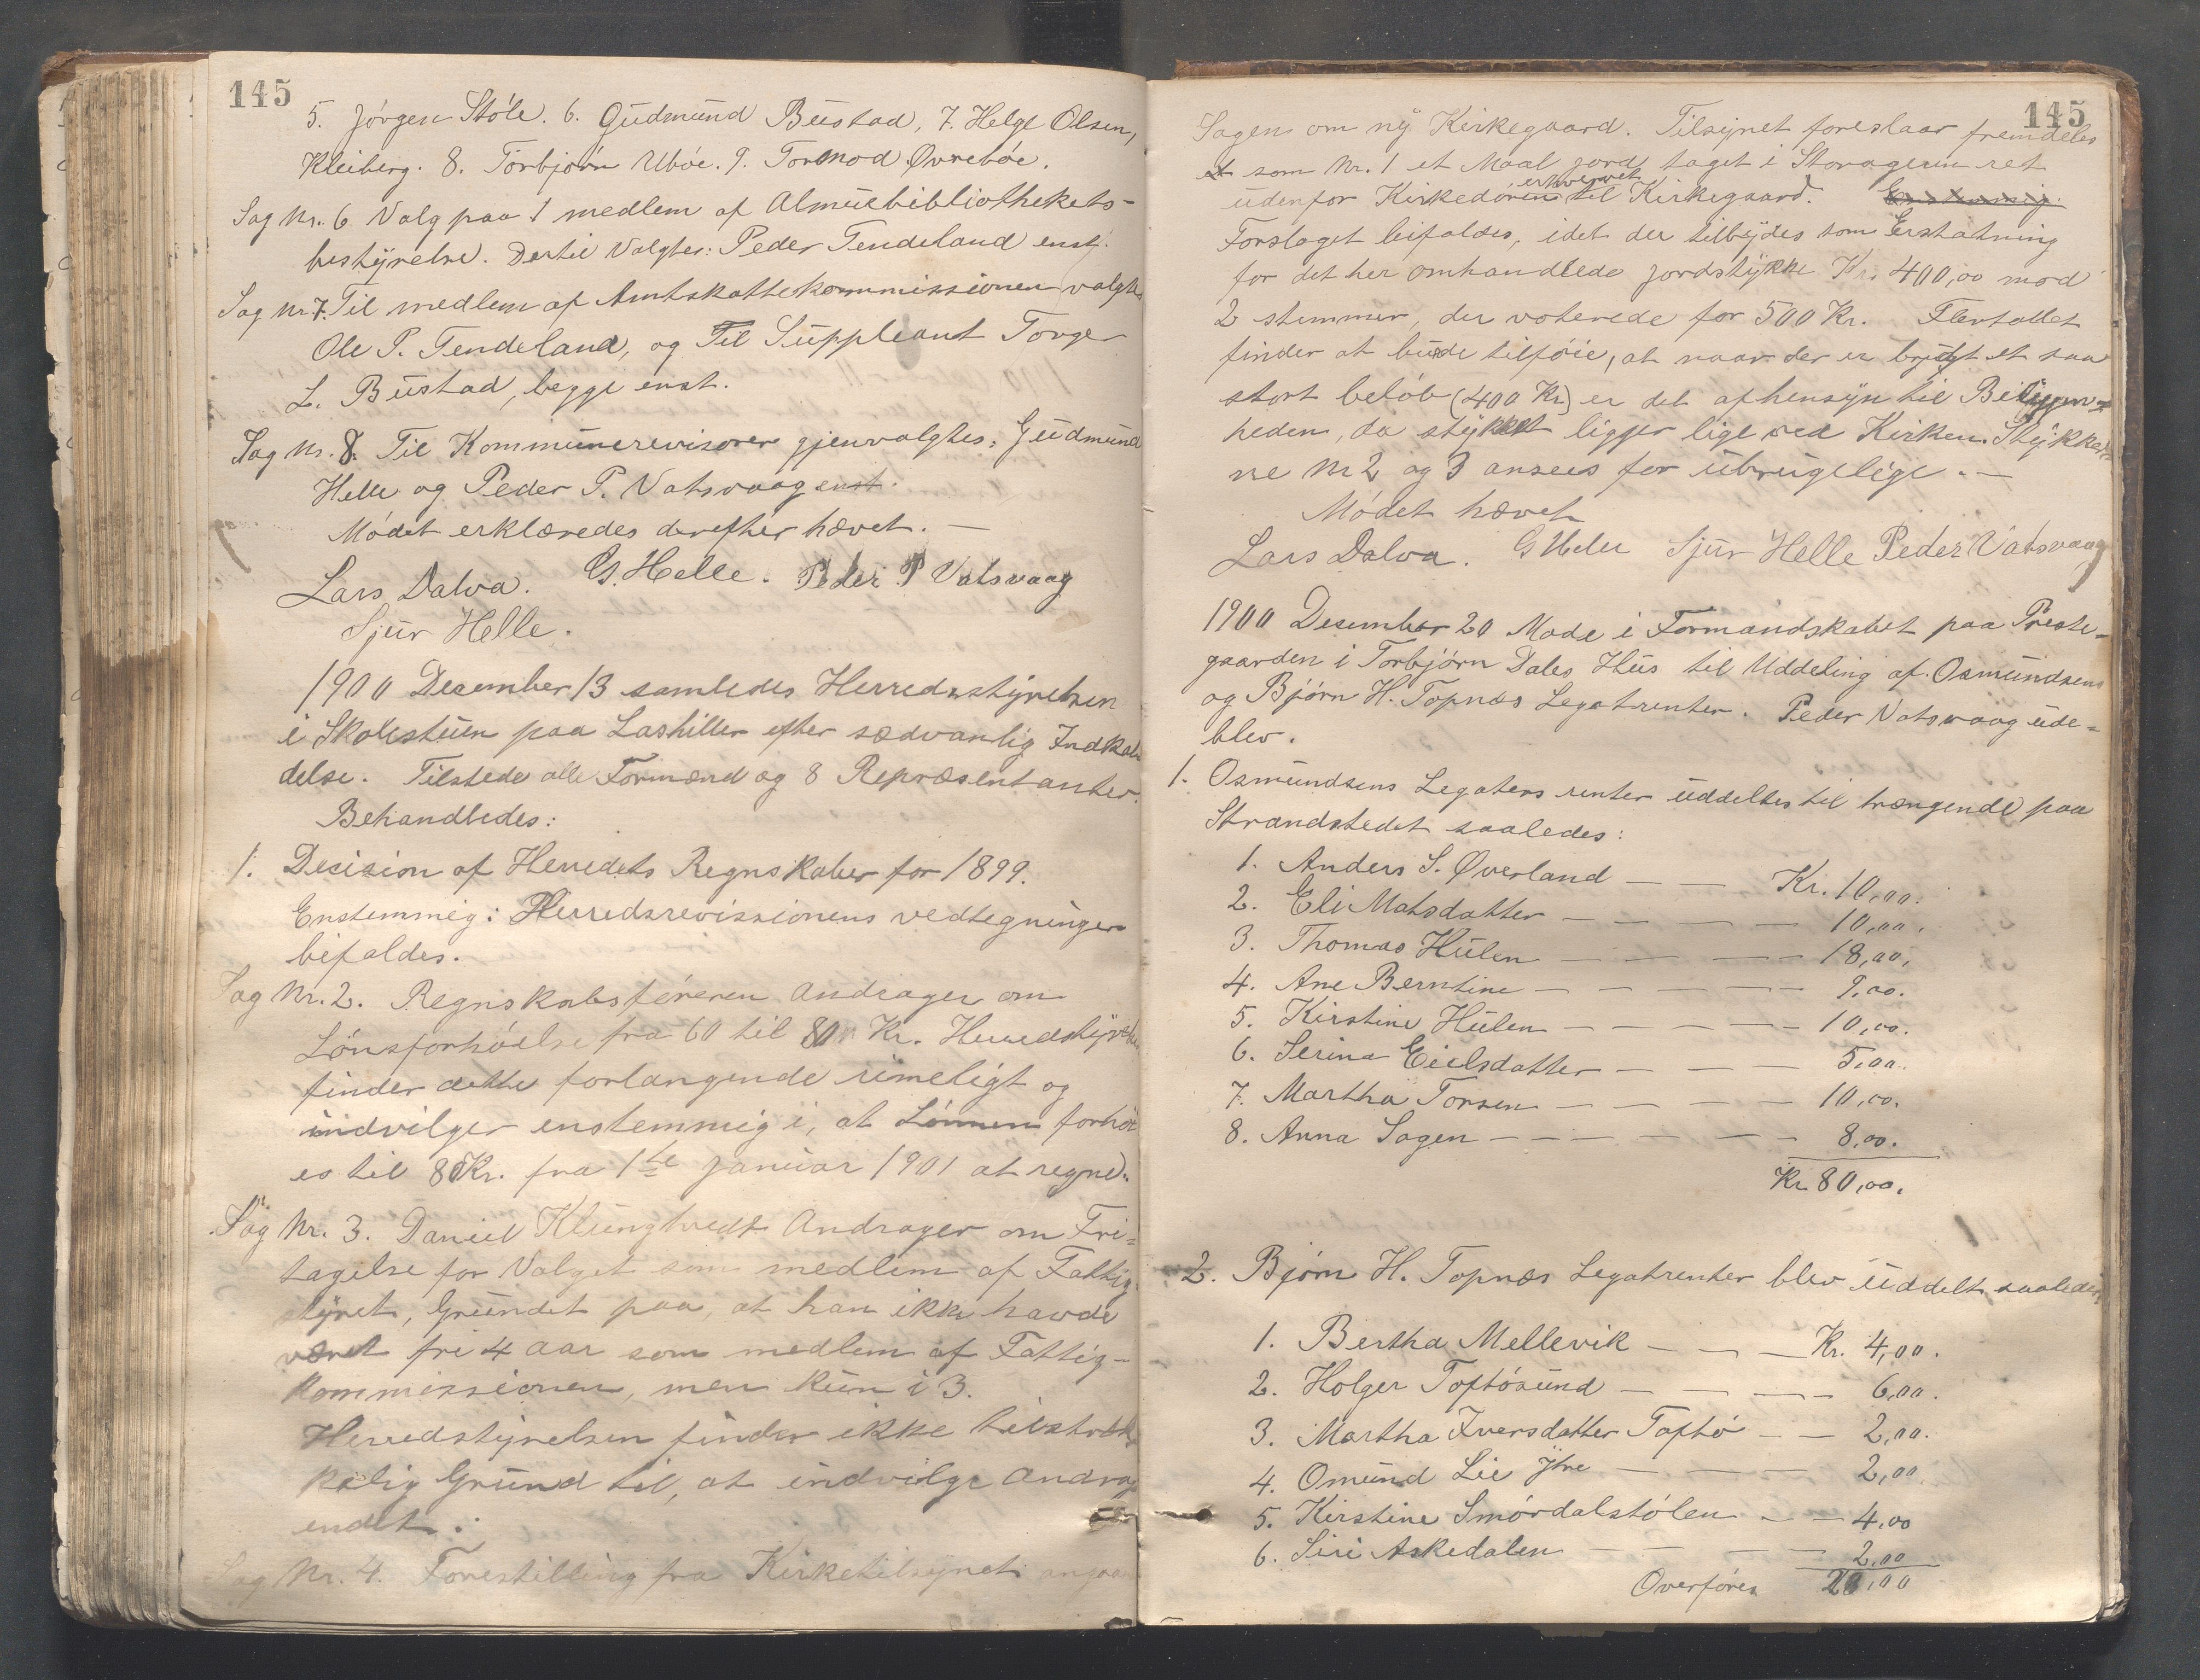 145
5. Jörgen Stöle. 6. Gudmund Bustad, 7. Helge Olsen,
Kleiberg. 8. Torbjörn Uböe. 9. Tormod Øvreböe.
Sag Nr. 6 Valg paa 1 medlem af Almuebibliothekets-
bestyrelse. Dertil Valgtes: Peder Tendeland enst.
Sag Nr 7. Til medlem af Amtskattekommissionen valgtes
Ole P. Tendeland, og Til Suppleant Torger
L. Bustad, begge enst.
Sag Nr. 8. Til Kommunerevisorer gjenvalgtes: Gudmund
Helle og Peder P. Vatsvaag enst.
Mödet erklæredes derefter hævet. —
Lars Dalva. G. Helle. Peder P Vatsvaag
Sjur Helle.
1900 December 13 samledes Herredsstyrelsen
i Skolestuen paa Lashiller efter sædvanlig Indkal
delse. Tilstede alle Formænd og 8 Repræsentanter.
Behandledes:
1. Decision af Herredets Regnskaber for 1899.
Enstemmig: Herredsrevissionens vedtegninger
bifaldes.
Sag Nr. 2. Regnskabsföreren Andrager om
Lönsforhöielse fra 60 til 80 Kr. Herredstyrelsen
finder dette forlangende rimeligt og
indvilger enstemmig i, at Lönnen forhöi
es til 80 Kr. fra 1ste Januar 1901 at regne.
Sag Nr. 3. Daniel Klungtvedt Andrager om Fri=
tagelse for Valget som medlem af Fattig
styret, Grundet paa, at han ikke havde
været fri 4 aar som medlem af Fattig-
kommissionen, men kun i 3.
Herredstyrelsen finder ikke tilstræk
kelig Grund til, at indvilge Andrag
endet.
Sag Nr. 4. Forestilling fra Kirketilsynet angaa
145
Sagen om ny Kirkegaard. Tilsynet foreslaar fremdeles
som Nr. 1 et Maal jord taget i Storageren ret
udenfor Kirkedören erhvervet til Kirkegaard. Enstemmig.
Forslaget bifaldes, idet der tilbydes som Erstatning
for det her omhandlede jordstykke Kr. 400,00 mod
2 stemmer, der voterede for 500 Kr. Flertallet
finder at burde tilföie, at naar der er brugt et saa
stort belöb (400 Kr) er det af hensyn til Beliggen=
heden, da stykket ligger lige ved Kirken. Stykker
ne Nr 2 og 3 ansees for ubrugelige. —
Mödet hævet
Lars Dalva. G Helle Sjur Helle Peder Vatsvaag
1900 Desember 20 Møde i Formandskabet paa Preste-
gaarden i Torbjörn Dales Hus til Uddeling af Osmundsens
og Björn H. Topnæs Legatrenter. Peder Vatsvaag ude=
blev.
1. Osmundsens Legaters renter uddeltes til trængende paa
Strandstedet saaledes:
1. Anders S. Øverland — — Kr. 10,00.
2. Eli Matsdatter — — — — 10,00.
3. Thomas Hulen — — — — 18,00.
4. Ane Berntine — — — — 9,00.
5. Kirstine Hulen — — — — 10,00.
6. Serina Eielsdatter — — — 5,00.
7. Martha Torsen — — — — 10,00.
8. Anna Sagen — — — — — 8,00.
Kr. 80,00.
2. Björn H. Topnæs Legatrenter blev uddelt saaledes
1. Bertha Mellevik — — — Kr. 4,00.
2. Holger Toftösund — — — — 6,00.
3. Martha Iversdatter Toftö — — 2,00.
4. Omund Lie ytre — — — 2,00
5. Kirstine Smördalstölen — — 4,00
6. Siri Askedalen — — — — 2,00
Overföres 20,00